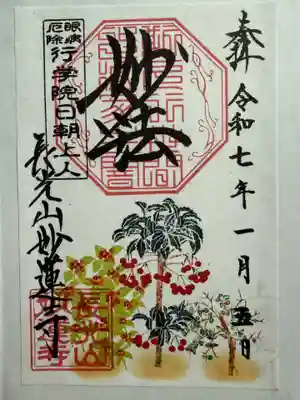 奉拝
令和七年一月五日
妙法
眼病
厄除
行学院日朝上人
長光山妙蓮寺